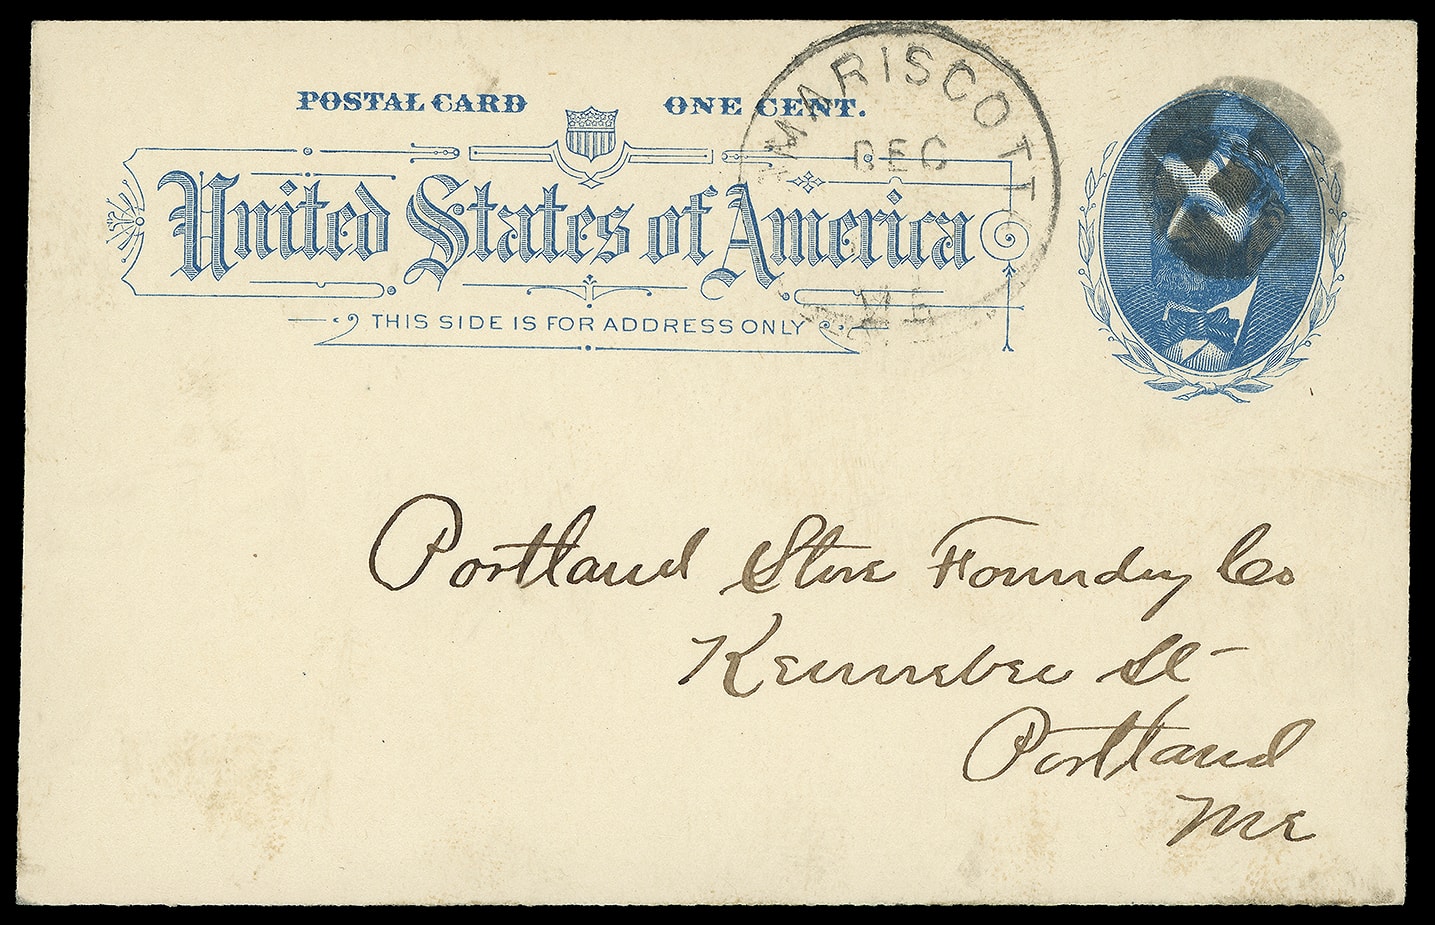 POSTAL CARD ONE CENT.
United States of America
THIS SIDE IS FOR ADDRESS ONLY
MARISCOTTA
DEC
ME
Portland Stove Foundry Co
Kennebec St
Portland
Me